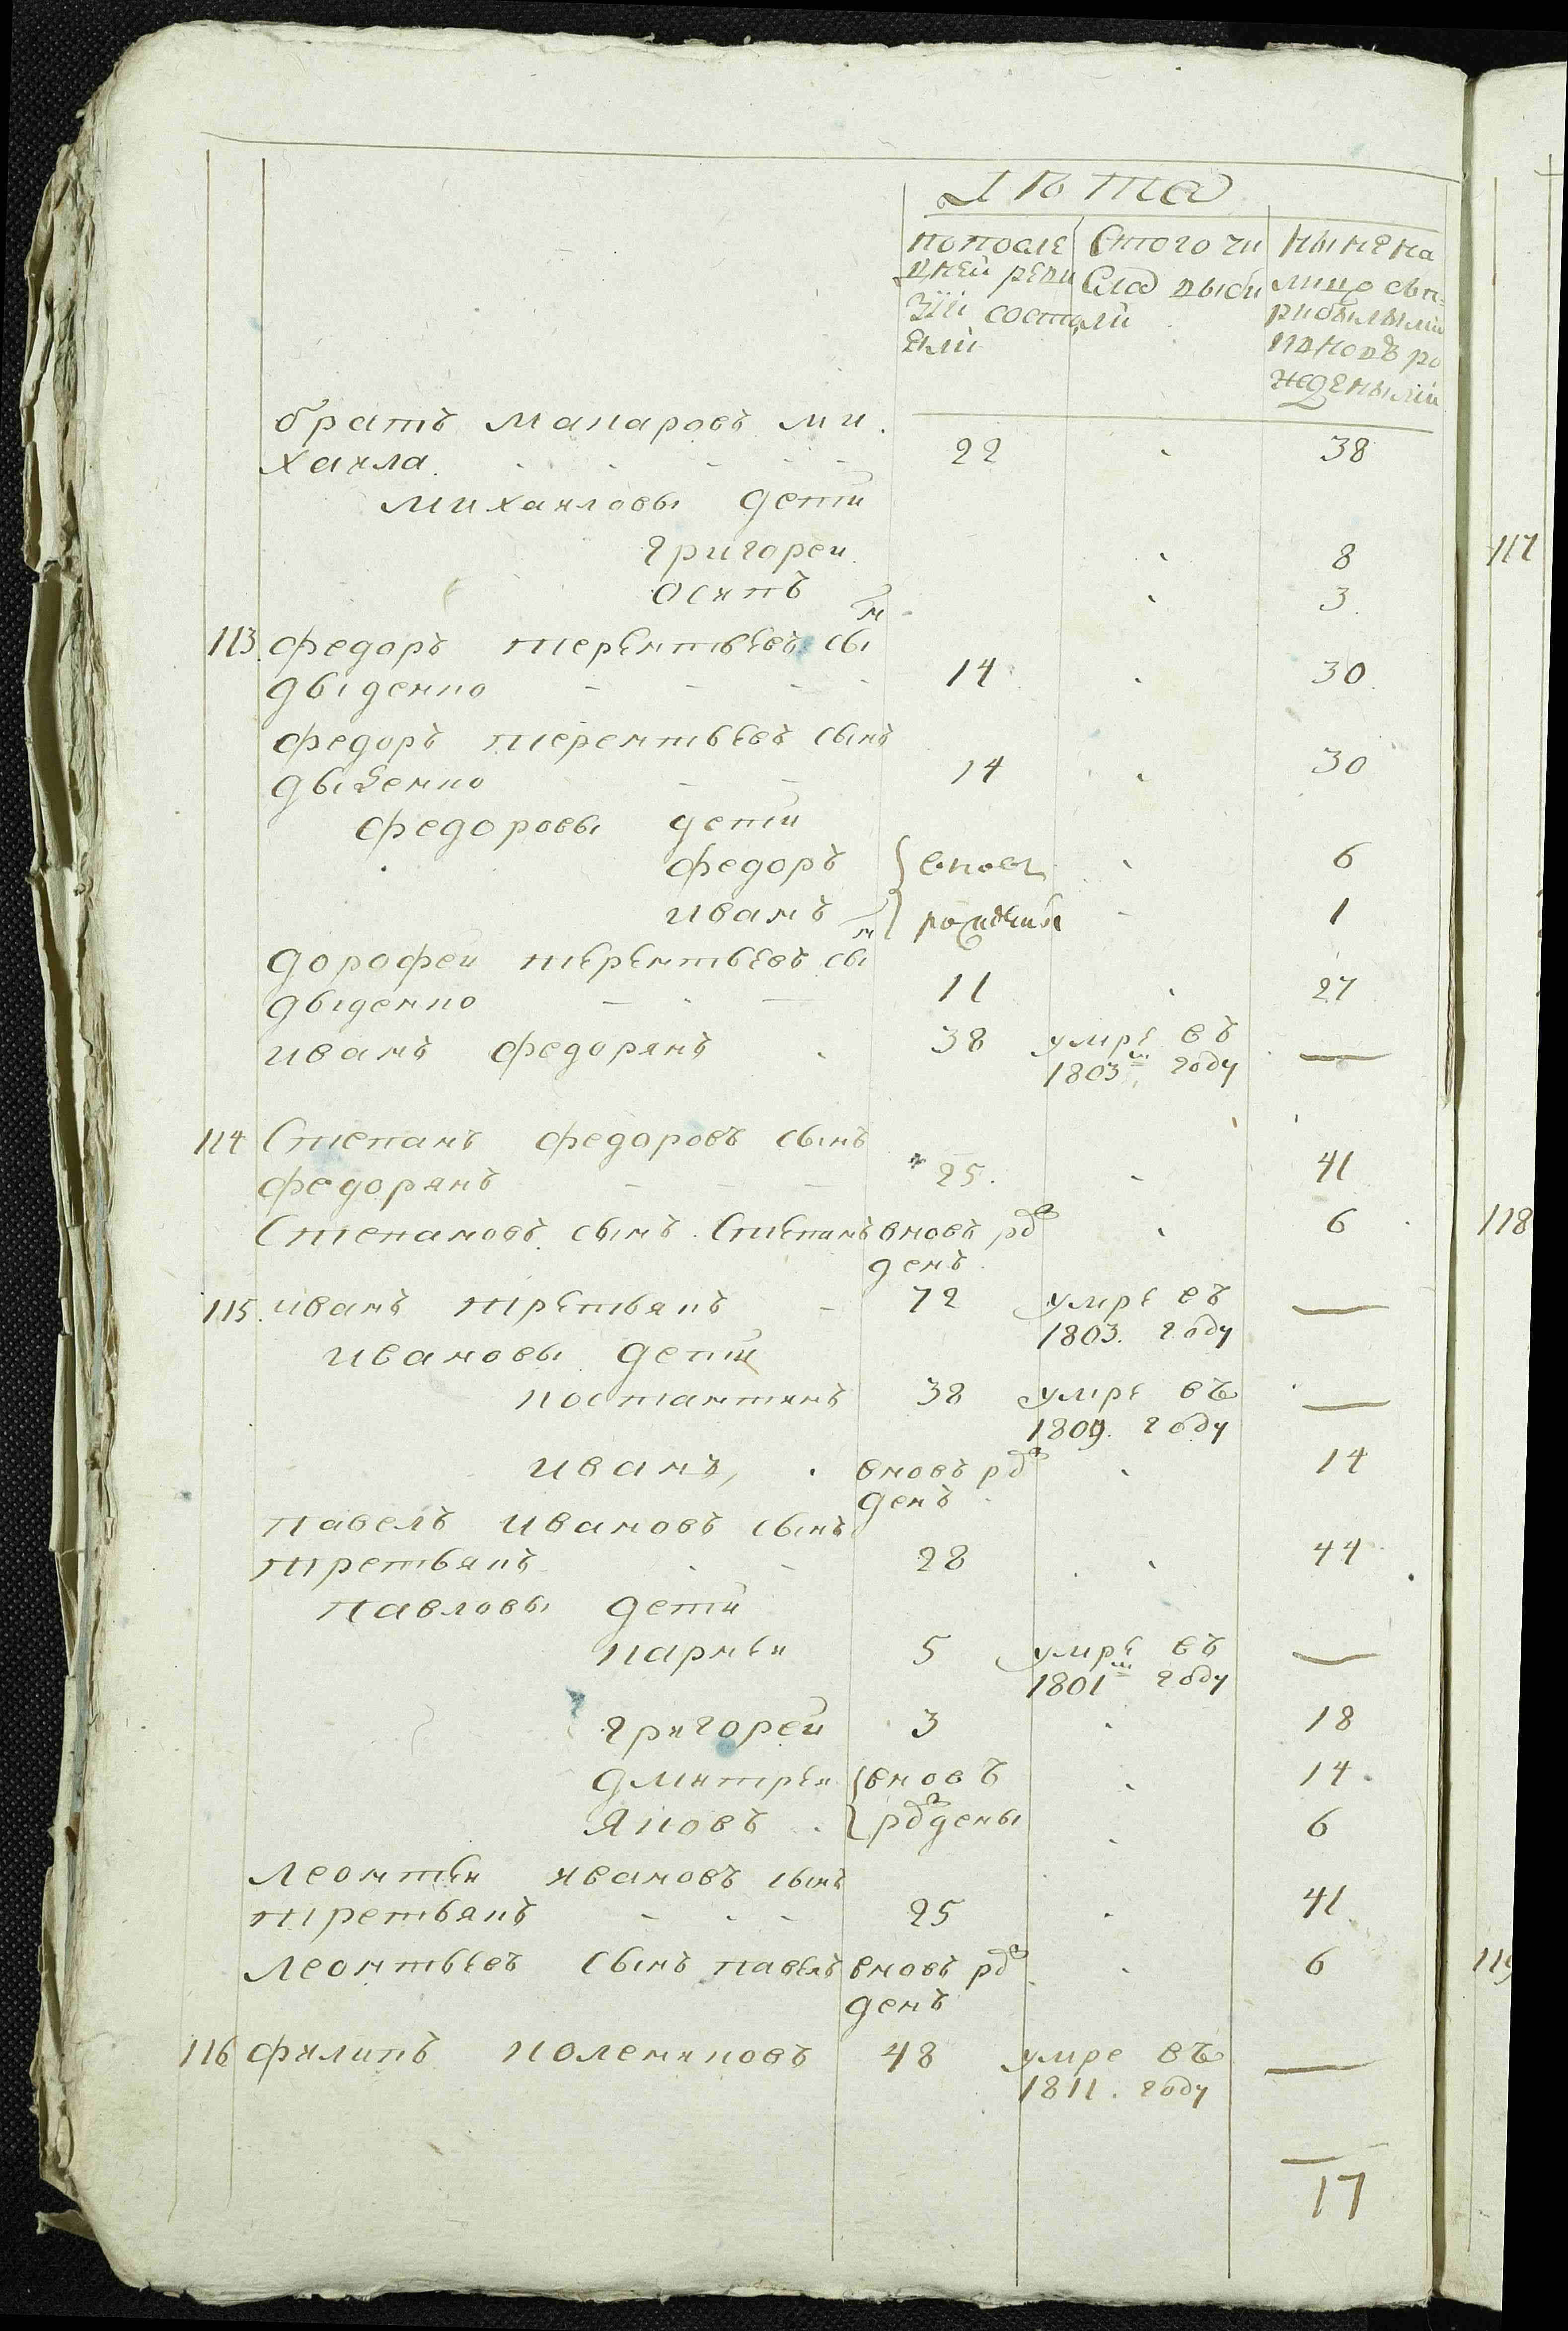 Лѣта
попосле Стого чи ныне на
дней реви сла выби лицо съп
зіи состо ли рибылыми
яли и вновь ро
жденными
братъ макаровъ ми
хаила 22 38
михаиловы дети
григореи 8
осипъ 3
113 федоръ терентьевъ сынъ
дыденко 14 30
федоръ терентьевъ сынъ
дыденко 14 30
федоровы дети
федоръ вновь 6
иванъ рождены 1
дорофеи терентьевъ сынъ
дыденко 11 27
иванъ федорякъ 38 умре въ —
1803м году
114 Степанъ федоровъ сынъ
федорякъ 25 41
Степановъ сынъ Степанъ вновь рож 6
денъ
115 иванъ третьякъ 72 умре въ —
1803. году
ивановы дети
костантинъ 38 умре въ —
1809. году
иванъ вновь рож 14
денъ
павелъ ивановъ сынъ
третьякъ 28 44
павловы дети
карнеи 5 умре въ —
1801м году
григореи 3 18
дмитреи вновь 14
яковъ рождены 6
леонтеи ивановъ сынъ
третьякъ 25 41
леонтьевъ сынъ павелъ вновь рож 6
денъ
116 филипъ колениковъ 48 умре въ —
1811. году
17
117
118
119